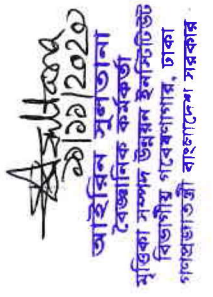 ASultana
০৯/১১/২০২০
আইরিন সুলতানা
বৈজ্ঞানিক কর্মকর্তা
মৃত্তিকা সম্পদ উন্নয়ন ইনস্টিটিউট
বিভাগীয় গবেষণাগার, ঢাকা
গণপ্রজাতন্ত্রী বাংলাদেশ সরকার